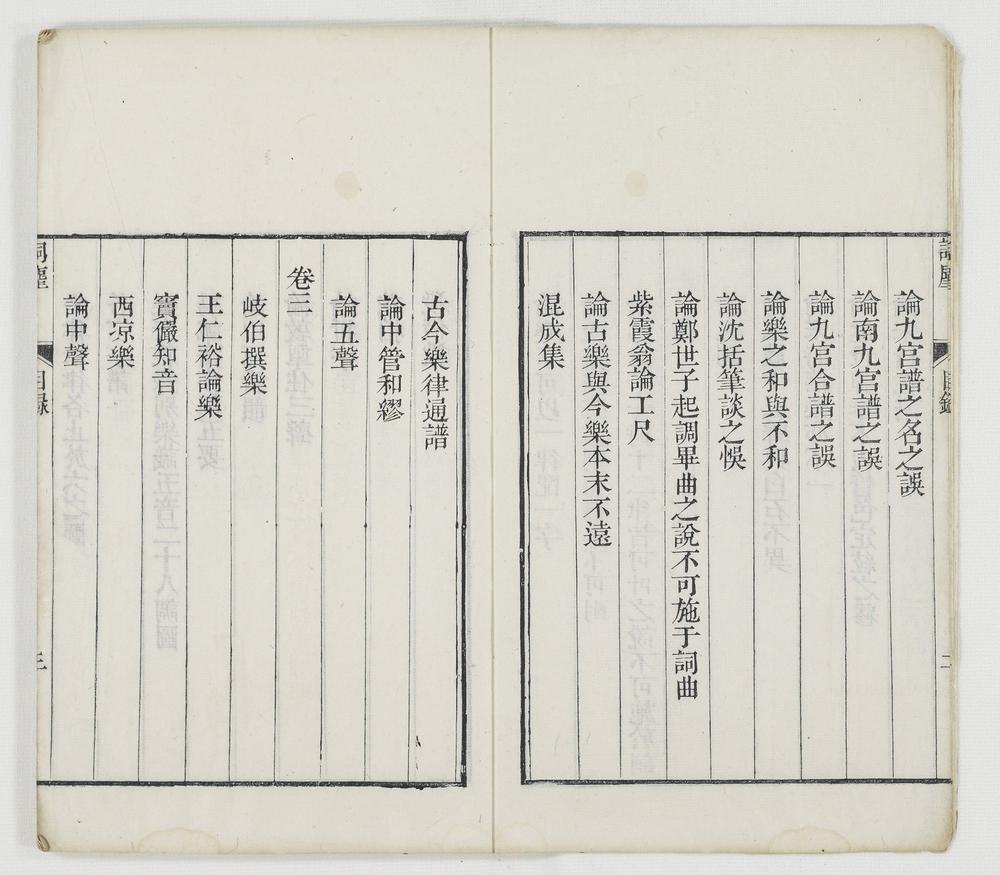 詞麈
目錄
二
論九宫譜之名之誤
論南九宫譜之誤
論九宫合譜之誤
論樂之和與不和
論沈括筆談之悞
論鄭世子起調畢曲之說不可施于詞曲
紫霞翁論工尺
論古樂與今樂本末不遠
混成集
古今樂律通譜
論中管和繆
論五聲
卷三
岐伯撰樂
王仁裕論樂
竇儼知音
西凉樂
論中聲
詞麈
目錄
三